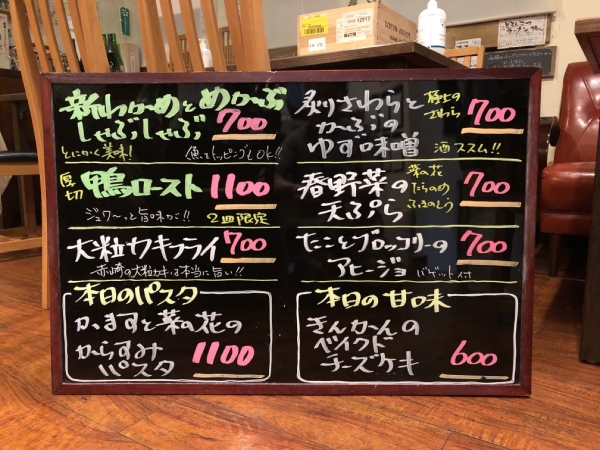 新わかめとめかぶ
しゃぶしゃぶ 700
とにかく美味!
魚もトッピングもOK!!
厚切 鴨ロースト 1100
ジュワ〜っと旨味が!!
2皿限定
大粒カキフライ 700
赤崎の大粒カキは本当に旨い!!
本日のパスタ
かますと菜の花の
からすみ
パスタ 1100
炙りさわらと
かーぶの
ゆず味噌
極上の
さわら
700
酒ススム!!
春野菜の
天ぷら
菜の花
たらのめ
ふきのとう
700
たことブロッコリーの
アヒージョ
700
バゲット付
本日の甘味
きんかんの
ベイクド
チーズケーキ 600